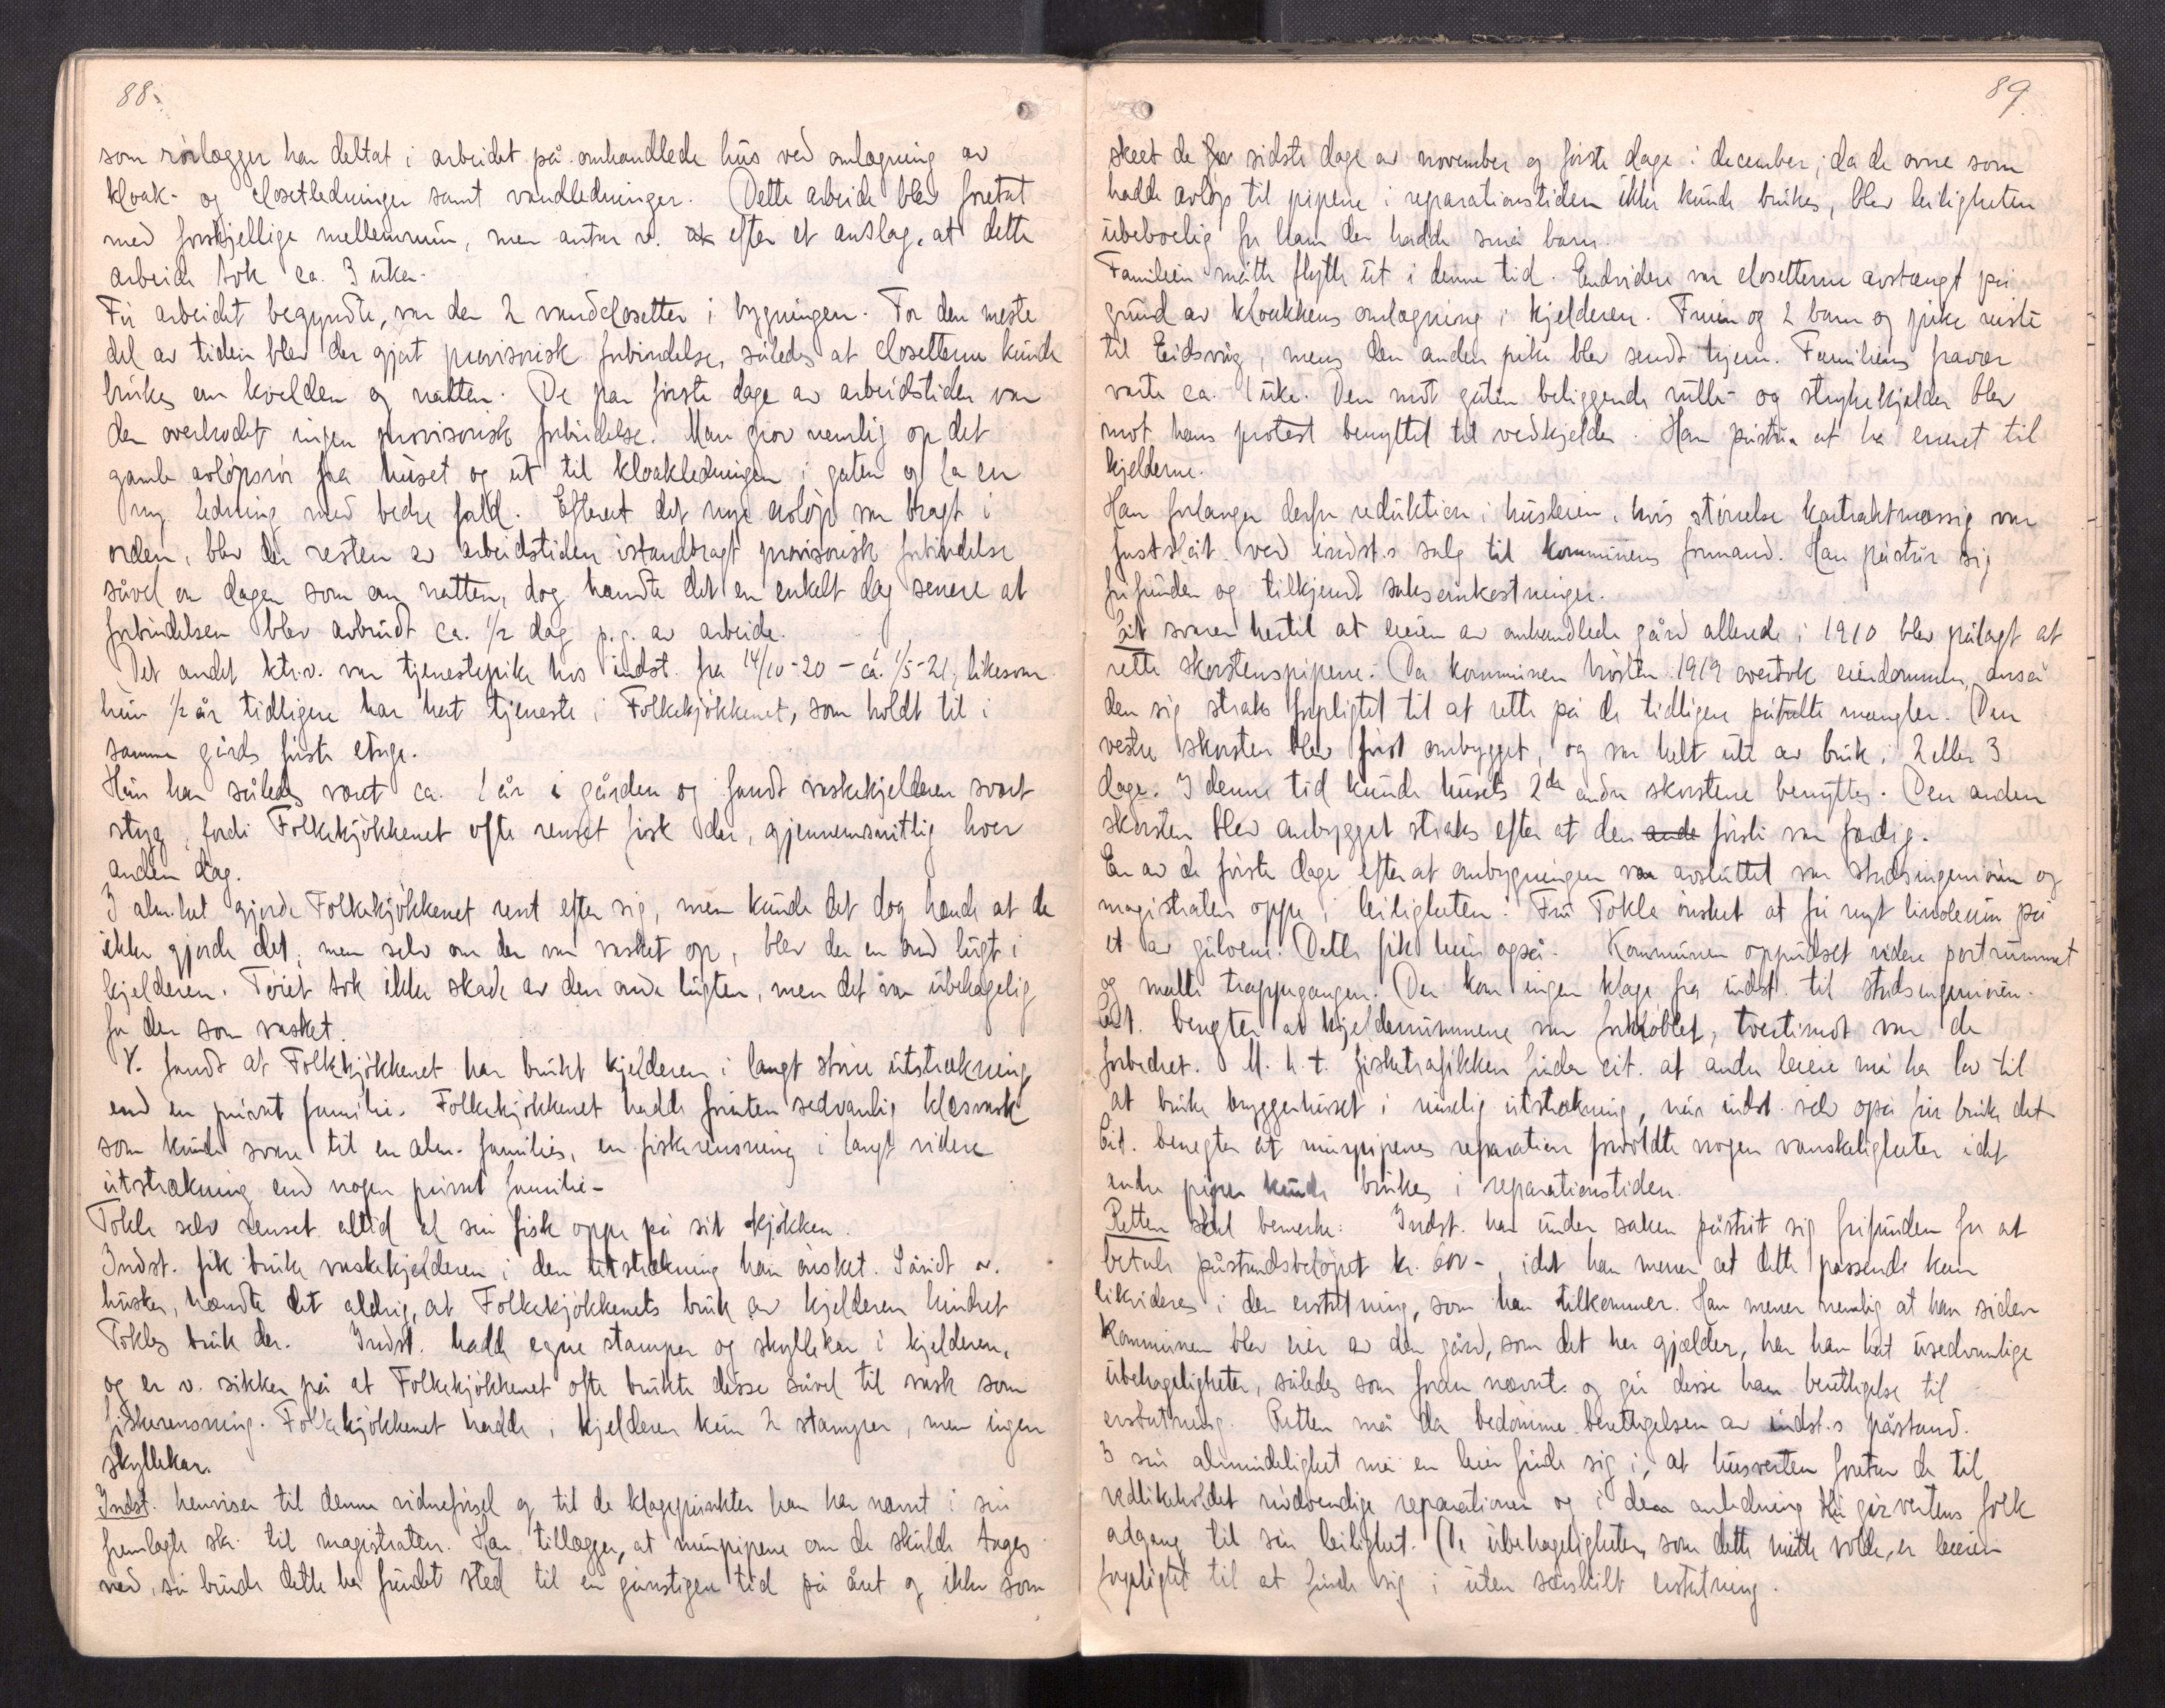 88.
som rörlægger har deltat i arbeidet på omhandlede hus ved omlægning av
kloak- og closetledninger samt vandledninger. Dette arbeide blev foretat
med forskjellige mellemrum, men antar v. at efter et anslag, at dette
arbeide tok ca. 3 uker.
Før arbeidet begyndte, var der 2 vandclosetter i bygningen. For den meste
del av tiden blev der gjort provisorisk forbindelse, således at closetterne kunde
brukes om kvelden og natten. De par første dage av arbeidstiden var
der overhodet ingen provisorisk forbindelse. Man grov nemlig op det
gamle avløpsrør fra huset og ut til kloakledningen i gaten og la en
ny ledning med bedre fald. Efterat det nye avløp var bragt i
orden, blev der resten av arbeidstiden istandbragt provisorisk forbindelse
såvel om dagen som om natten, dog hændte det en enkelt dag senere at
forbindelsen blev avbrudt ca. 1/2 dag p.g. av arbeide.
Det andet ktr.v. var tjenestepike hos indst. fra 14/10-20 - ca. 1/5-21, likesom
hun 1/2 år tidligere har hat tjeneste i Folkekjøkkenet, som holdt til i
samme gårds første etage.
Hun har således været ca. 1 år i gården og fandt vaskekjelderen svært
styg, fordi Folkekjøkkenet ofte renset fisk der, gjennemsnitlig hver
anden dag.
I alm.het gjorde Folkekjøkkenet rent efter sig, men kunde det dog hænde at de
ikke gjorde det; men selv om der var vasket op, blev der en ond lugt i
kjelderen. Tøiet tok ikke skade av den onde lugten, men det var ubehagelig
for den som vasket.
V. fandt at Folkekjøkkenet har brukt kjelderen i langt større utstrækning
end en privat familie. Folkekjøkkenet hadde foruten sedvanlig klæsvask
som kunde svare til en alm. families, en fiskerensning i langt videre
utstrækning end nogen privat familie.
Tokle selv renset altid al sin fisk oppe på sit kjøkken.
Indst. fik bruke vaskekjelderen i den utstrækning han ønsket. Såvidt v.
husker, hændte det aldrig, at Folkekjøkkenets bruk av kjelderen hindret
Tokles bruk der. Indst. hadde egne stamper og skyllekar i kjelderen,
og er v. sikker på at Folkekjøkkenet ofte brukte disse såvel til vask som
fiskerensning. Folkekjøkkenet hadde i kjelderen kun 2 stamper, men ingen
skyllekar.
Indst. henviser til denne vidneførsel og til de klagepunkter han har nævnt i sin
fremlagte skr. til magistraten. Han tillægger, at murpipene om de skulde tages
ned, så burde dette ha fundet sted til en gunstigere tid på året og ikke som
89.
skeet de sidste dage av november og første dage i december; da de ovne som
hadde avløp til pipene i reparationstiden ikke kunde brukes, blev leiligheten
ubeboelig for ham der hadde små barn.
Familien måtte flytte ut i denne tid. Endvidere var closetterne avstængt på
grund av kloakkens omlægning i kjelderen. Fruen og 2 barn og pike reiste
til Eidsvåg, mens den anden pike blev sendt hjem. Familiens fravær
varte ca. 1 uke. Den mot gaten beliggende rulle- og strykekjelder blev
mot hans protest benyttet til vedkjelder. Han påstår at ha eneret til
kjelderne.
Han forlanger derfor reduktion i husleien, hvis størrelse kontraktmæssig var
fastslåt ved indst.s salg til kommunens formand. Han påstår sig
frifunden og tilkjendt saksomkostninger.
Cit. svarer hertil at eieren av omhandlede gård allerede i 1910 blev pålagt at
rette skorstenspipene. Da kommunen høsten 1919 overtok eiendommen, anså
den sig straks forpligtet til at rette på de tidligere påtalte mangler. Den
vestre skorsten blev først ombygget, og var helt ute av bruk i 2 eller 3
dage. I denne tid kunde husets 2de andre skorstene benyttes. Den anden
skorsten blev ombygget straks efter at den ande første var færdig.
En av de første dage efter at ombygningen var avsluttet var stadsingeniøren og
magistraten oppe i leiligheten. Fru Tokle ønsket at få nyt linoleum på
et av gulvene. Dette fik hun også. Kommunen oppudset videre portrummet
og malte trappegangen. Der kom ingen klage fra indst. til stadsingeniøren.
Cit. benegter at kjelderrummene var forkloblet, tvertimot var de
forbedret. M.h.t. fisketrafikken finder cit. at andre leiere må ha lov til
at bruke bryggerhuset i rimelig utstrækning, når indst. selv også får bruke det.
Cit. benegter at murpipenes reparation forvoldte nogen vanskeligheter idet
andre piper kunde brukes i reparationstiden.
Retten skal bemerke: Indst. har under saken påstått sig frifunden for at
betale påstandsbeløpet kr. 600-, idet han mener at dette passende kan
likvideres i den erstatning, som han tilkommer. Han mener nemlig at han siden
kommunen blev eier av den gård, som det her gjælder, har han hat usedvanlige
ubehageligheter, således som foran nævnt og gir disse ham berettigelse til
erstatning. Retten må da bedømme berettigelsen av indst.s påstand.
I sin almindelighet må en leier finde sig i, at husverten foretar de til
vedlikeholdet nødvendige reparationer og i den anledning gir vertens folk
adgang til sin leilighet. De ubehageligheter, som dette måtte volde, er leieren
forpligtet til at finde sig i uten særskilt erstatning.